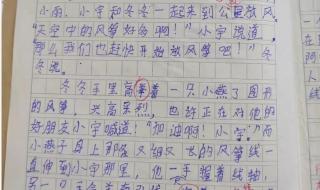 小丽、小宇和冬冬一起来到公园放风
"天空中的风筝好多啊!"小宇说道,
那么我们也赶快开始放风筝吧!"冬
冬说。
冬冬手里高举着一只小燕子图形
的风筝,兴高采烈,也许正在对他的
好朋友小宇喊道:"加油啊!小宇"而
小燕子身上那条又细又长的风筝线一
直伸到小宇那里,他一手握着线轴,